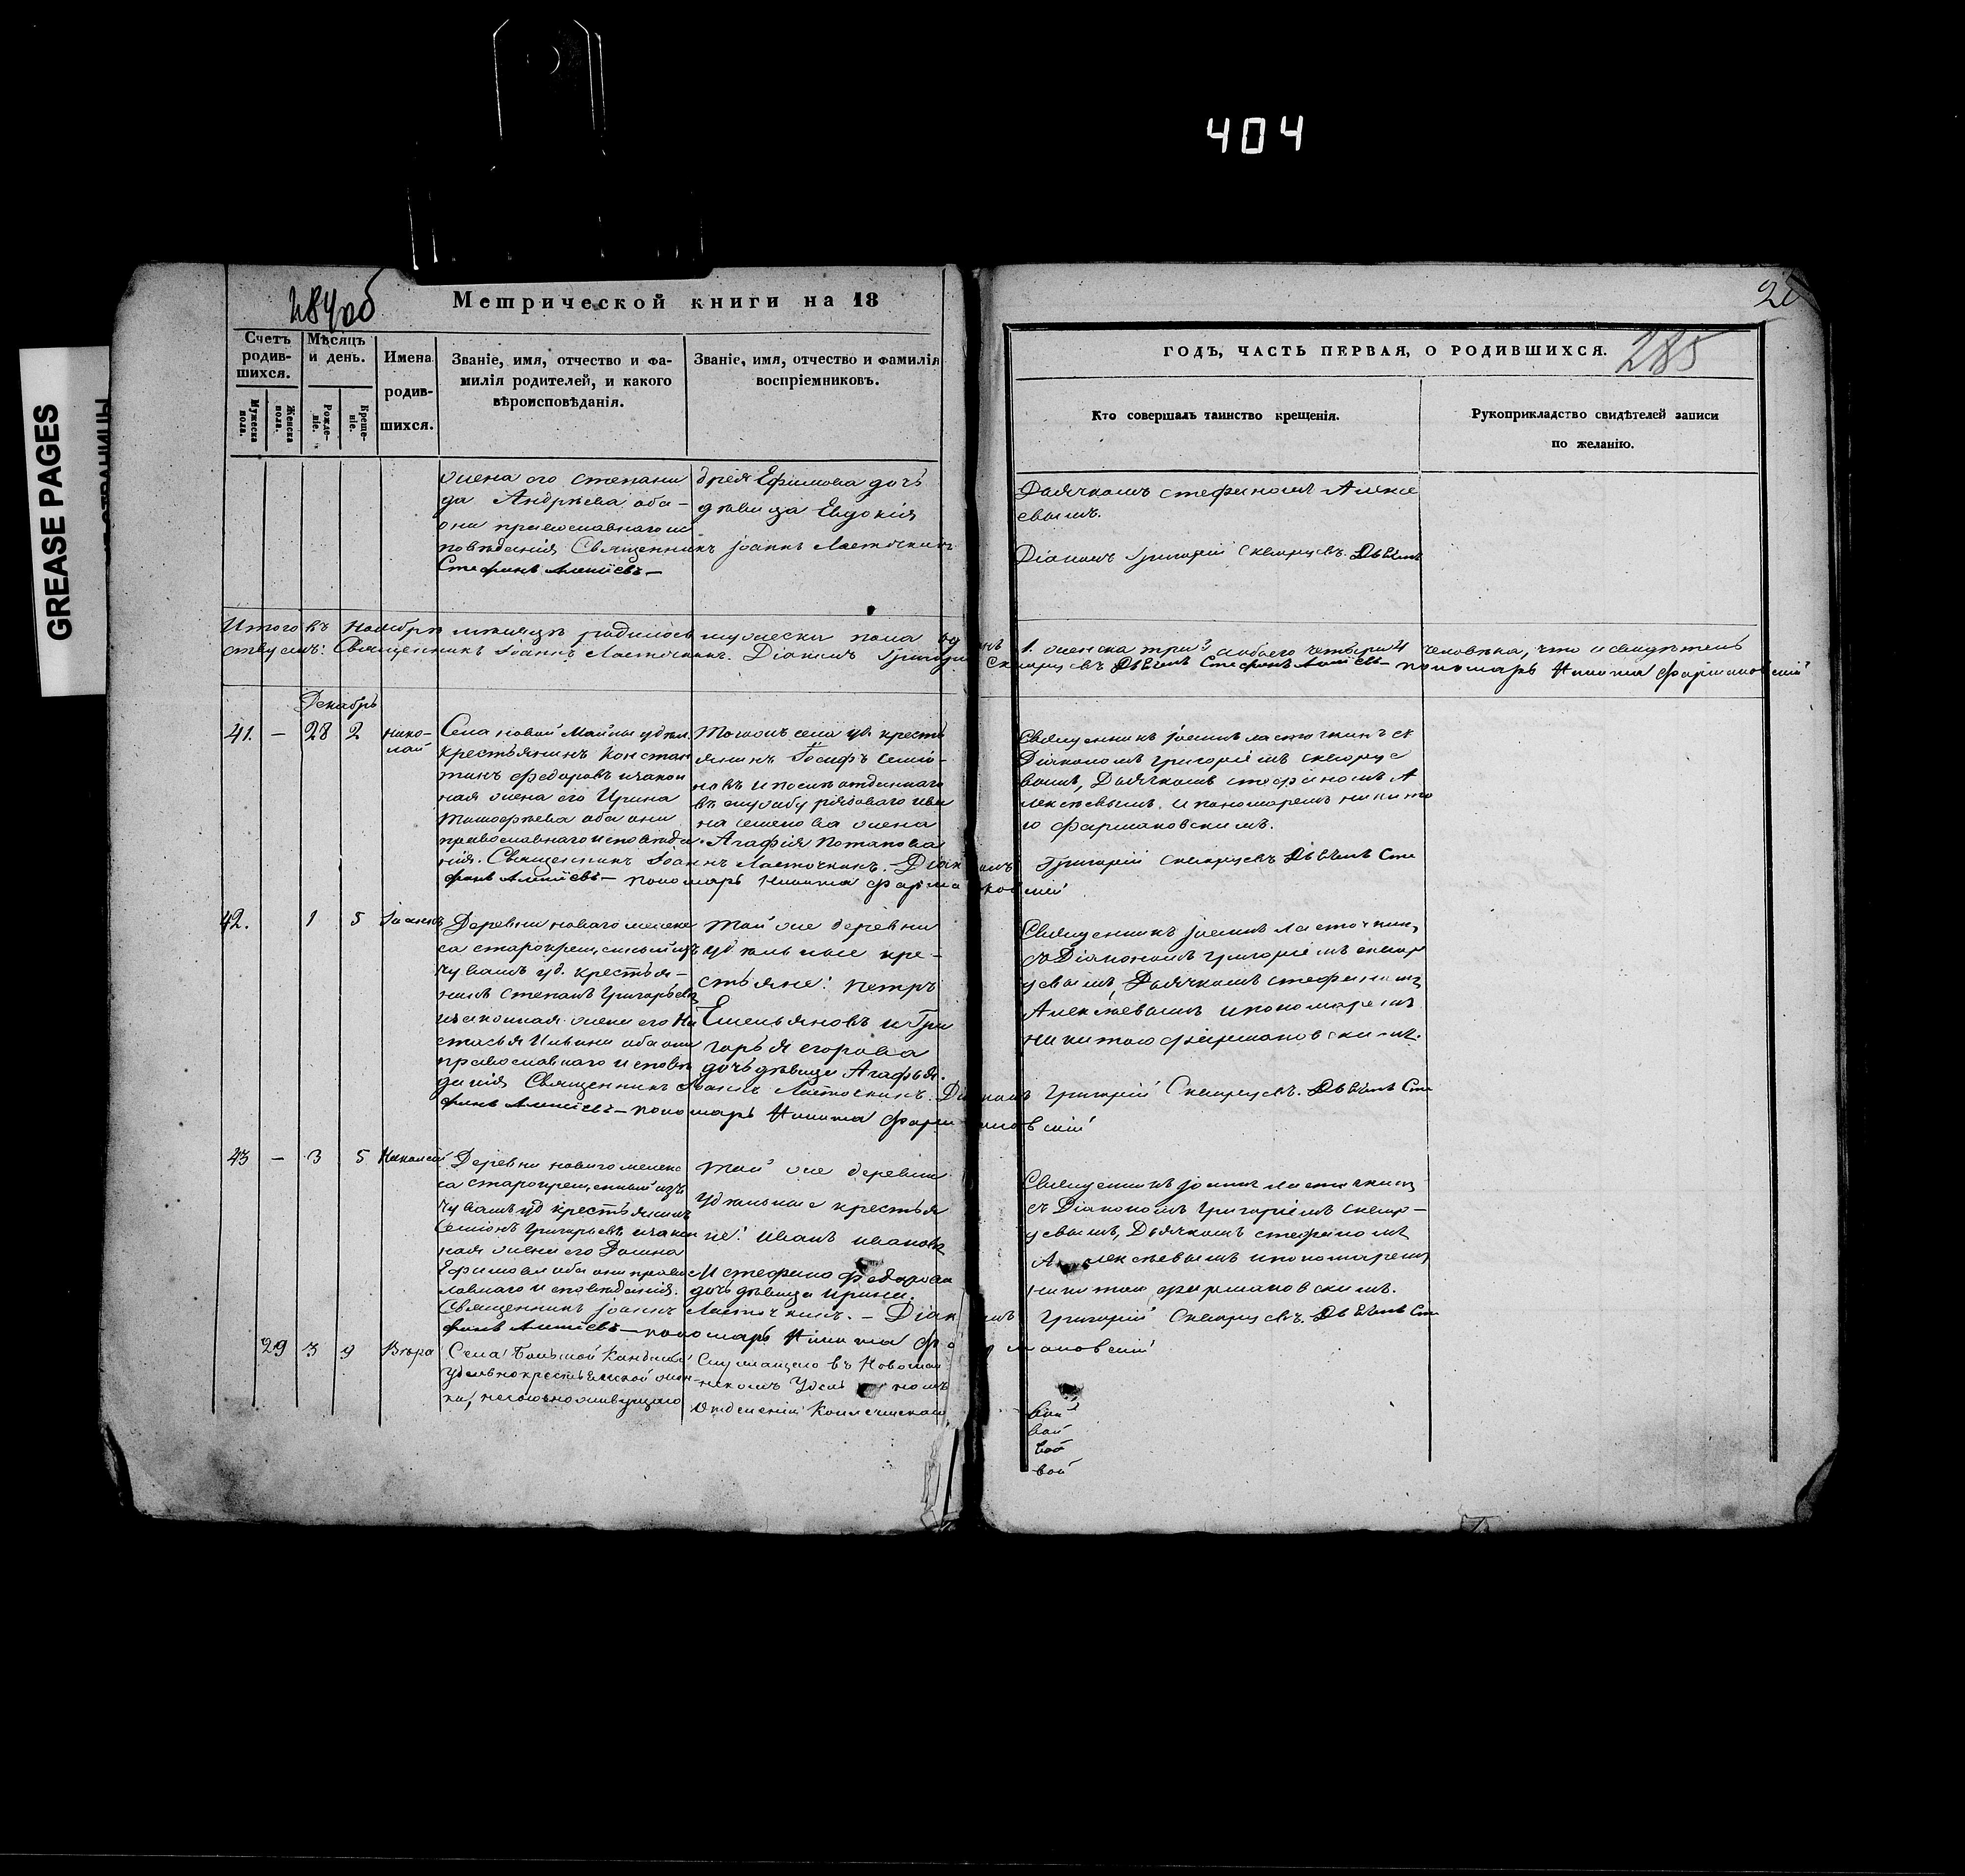 404
GREASE PAGES
284об
Метрической книги на 18
Счетъ родив-
шихся.
Мѣсяцъ
и день.
Имена
родив-
шихся.
Мужеска пола.
Женска пола.
Рожде-
ніе.
Креще-
ніе.
Званіе, имя, отчество и фа-
милія родителей, и какого
вѣроисповѣданія.
Званіе, имя, отчество и фамилія
воспріемниковъ.
жена его Степани
да Андрѣева оба-
они православнаго ис
повѣданія Священникъ Іоаннъ Ласточкинъ
Стефанъ Алексіевъ—
Ефимова дочь
дѣвица Евдокія
Итого въ Ноябрѣ мѣсяцѣ родилось мужеска пола
Священникъ Іоаннъ Ласточкинъ. Діаконъ Григорій
Декабрь
41. — 28 2 Нико-
лай
Села Новой Майны удѣл.
крестьянинъ Констан
тинъ Федоровъ и закон
ная жена его Ирина
Тимофѣева оба они
православнаго исповѣда
нія. Священникъ Іоаннъ Ласточкинъ. — Діаконъ
фанъ Алексіевъ — пономарь Никита Фармаковскій
Тогожъ села уд. кресть
янинъ Іосифъ Семіо-
новъ и
въ службу рядоваго Ива
на Семенова жена
Агафія Потапова
42. 1 5 Іоаннъ
Деревни Новаго Мелеке
са старокрещеный изъ
чувашъ уд. крестья-
нинъ Степанъ Григорьевъ
и законная жена его На
стасья Ильина оба они
православнаго исповѣ
данія Священникъ Іоаннъ Ласточкинъ. Діаконъ
фанъ Алексіевъ — пономарь Никита Фармаковскій
той же деревни
удѣльные кре-
стьяне: Петръ
Емельяновъ и Гри
горья Егорова
дочь дѣвица Агафья.
43 — 3 5 Николай
Деревни Новаго Мелеке
са старокрещеный изъ
чувашъ уд крестьянинъ
Семіонъ Григорьевъ и закон
ная жена его Домна
Ефимова оба они право
славнаго исповѣданія.
Священникъ Іоаннъ Ласточкинъ. — Діаконъ
фанъ Алексіевъ — пономарь Никита
той же деревни
удѣльные крестья
не: Иванъ Ивановъ
И Стефана Федорова
дочь дѣвица Ирина.
29 3 9 Вѣра
Села Большой Кандалы
удѣльнокрестьянской жон-
ки,
Служащаго въ Новомай
нскомъ Удѣльномъ
Отделеніи
285
ГОДЪ, ЧАСТЬ ПЕРВАЯ, О РОДИВШИХСЯ.
Кто совершалъ таинство крещенія.
Рукоприкладство свидѣтелей записи
по желанію.
Дьячкомъ Стефаномъ Алексе
евымъ.
Діаконъ Григорій Скворцевъ. Дьячекъ
1. женска три 3 а обоего четыри 4 человѣка, что и свидѣтель
Скворцевъ Дьячекъ Стефанъ Алексіевъ — пономарь Никита Фармаковскій
Священникъ Іоаннъ Ласточкинъ съ
Діакономъ Григоріемъ Скворце
вымъ, Дьячкомъ Стефаномъ А
лексѣевымъ и пономаремъ Никито
ю Фармаковскимъ.
Григорій Скворцевъ Дьячекъ Сте
Священникъ Іоаннъ Ласточкинъ
съ Діакономъ Григоріемъ Сквор
цевымъ, Дьячкомъ Стефаномъ
Алексѣевымъ и пономаремъ
Никитою Фармаковскимъ.
Григорій Скворцевъ. Дьячекъ Сте
Священникъ Іоаннъ Ласточкинъ
съ Діакономъ Григоріемъ Сквор-
цевымъ, Дьячкомъ Стефаномъ
Алексѣевымъ и пономаремъ
Никитою Фармаковскимъ.
Григорій Скворцевъ. Дьячекъ Сте
вой
вой
вой